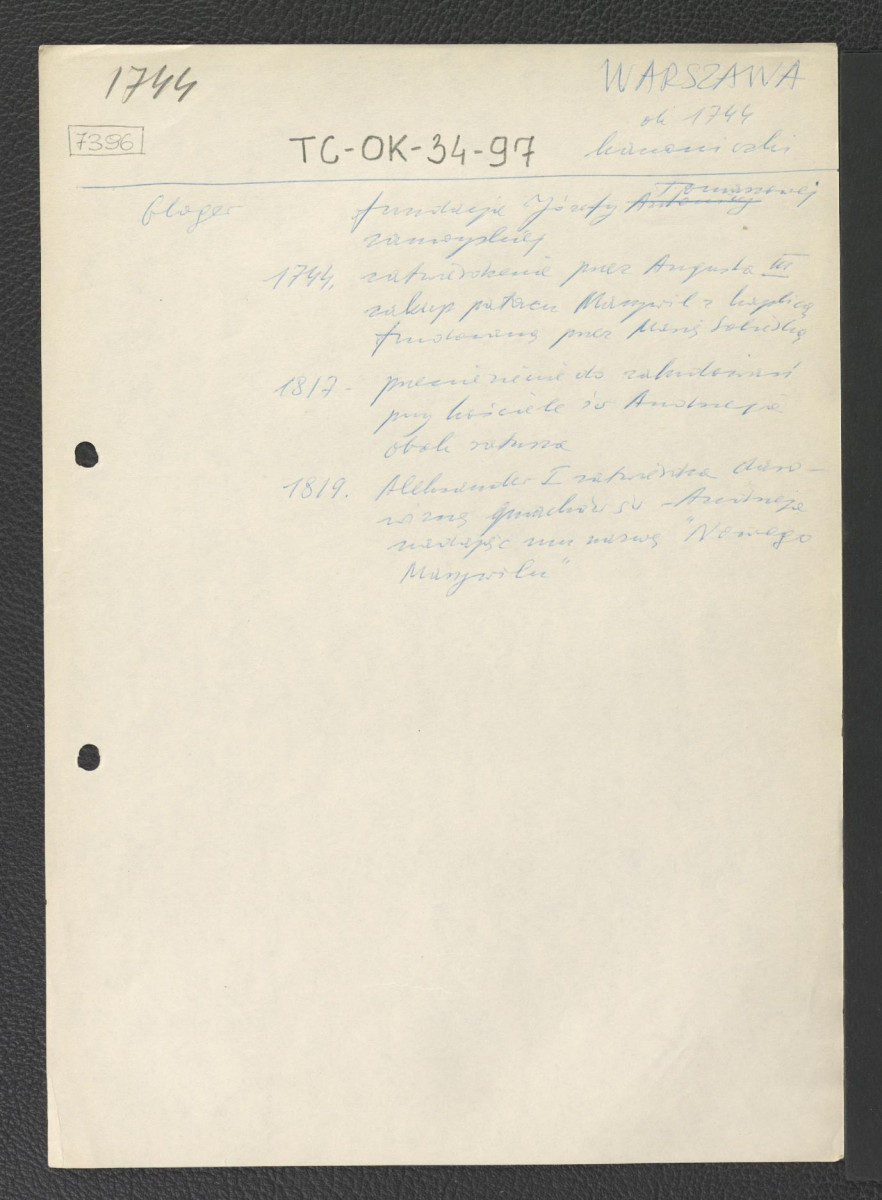 1744
WARSZAWA
ok 1744
7396
TC-OK-34-97
kanoniczki
Gloger
fundacja Józefy Antoniny Tomaszowej
zamoyskiej
1744. zatwierdzenie przez Augusta III
zakup pałacu Marywil z kaplicą
fundowaną przez Marię Sobieską
1817 - przeniesienie do zabudowań
przy kościele św Andrzeja
obok ratusza
1819. Aleksander I zatwierdza daro-
wiznę gmachów św Andrzeja
nadając mu nazwę "Nowego
Marywilu"